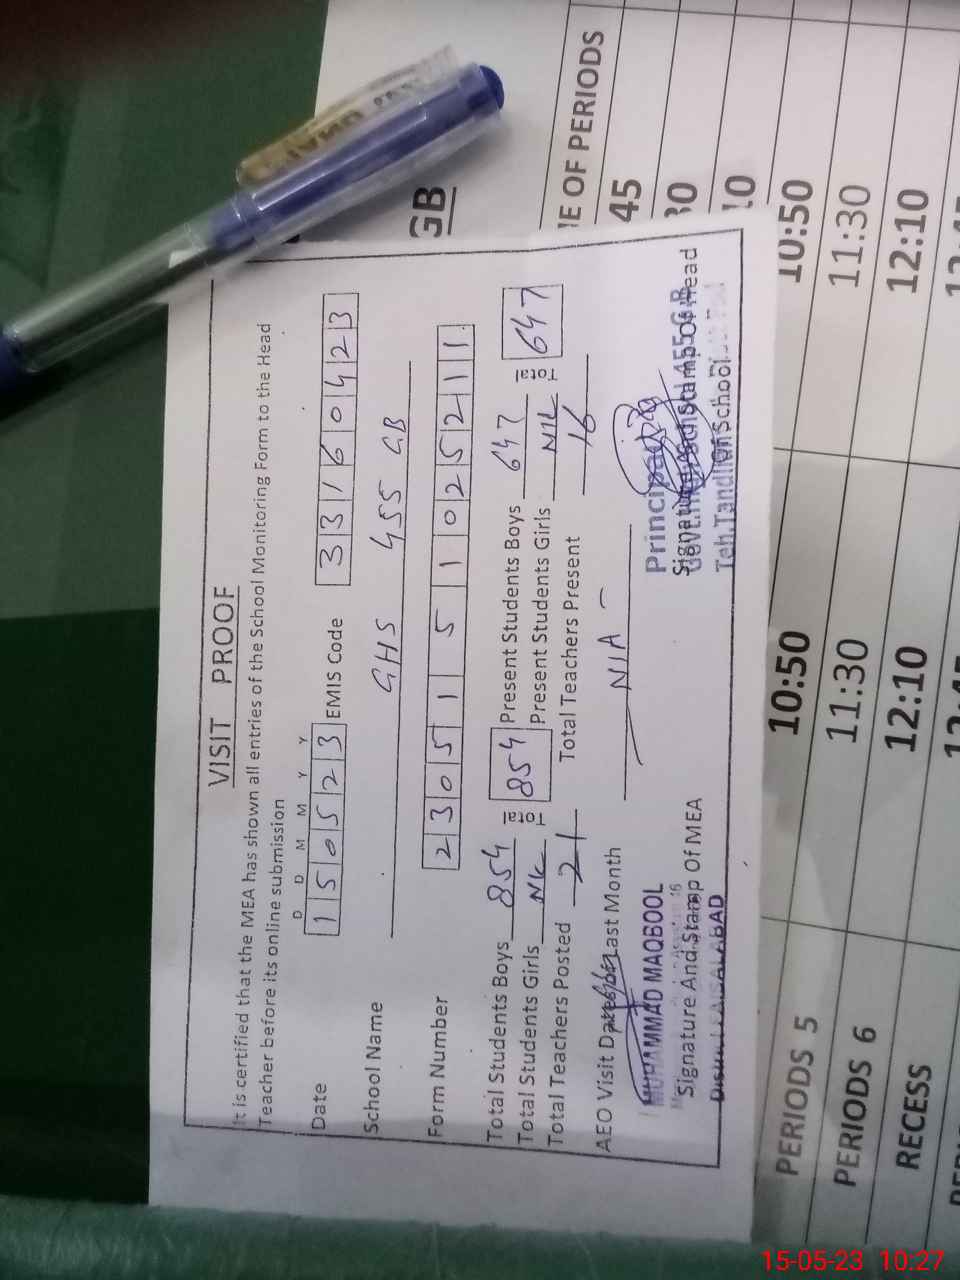 VISIT PROOF
It is certified that the MEA has shown all entries of the School Monitoring Form to the Head
Teacher before its online submission
D D M M Y Y
Date 150523 EMIS Code 33160423
School Name GHS 455 GB
Form Number 23051511025211
Total Students Boys 854 Total 854 Present Students Boys 647 Total 647
Total Students Girls NIL Present Students Girls NIL
Total Teachers Posted 21 Total Teachers Present 16
AEO Visit Dates of Last Month N/A
MUHAMMAD MAQBOOL
Signature And Stamp Of MEA
FAISALABAD
Principal
Signature And Stamp Of Head
Of School
455 G.B
GB
E OF PERIODS
45
30
10
10:50 10:50
PERIODS 5
11:30 11:30
PERIODS 6
12:10 12:10
RECESS
12:45
15-05-23 10:27